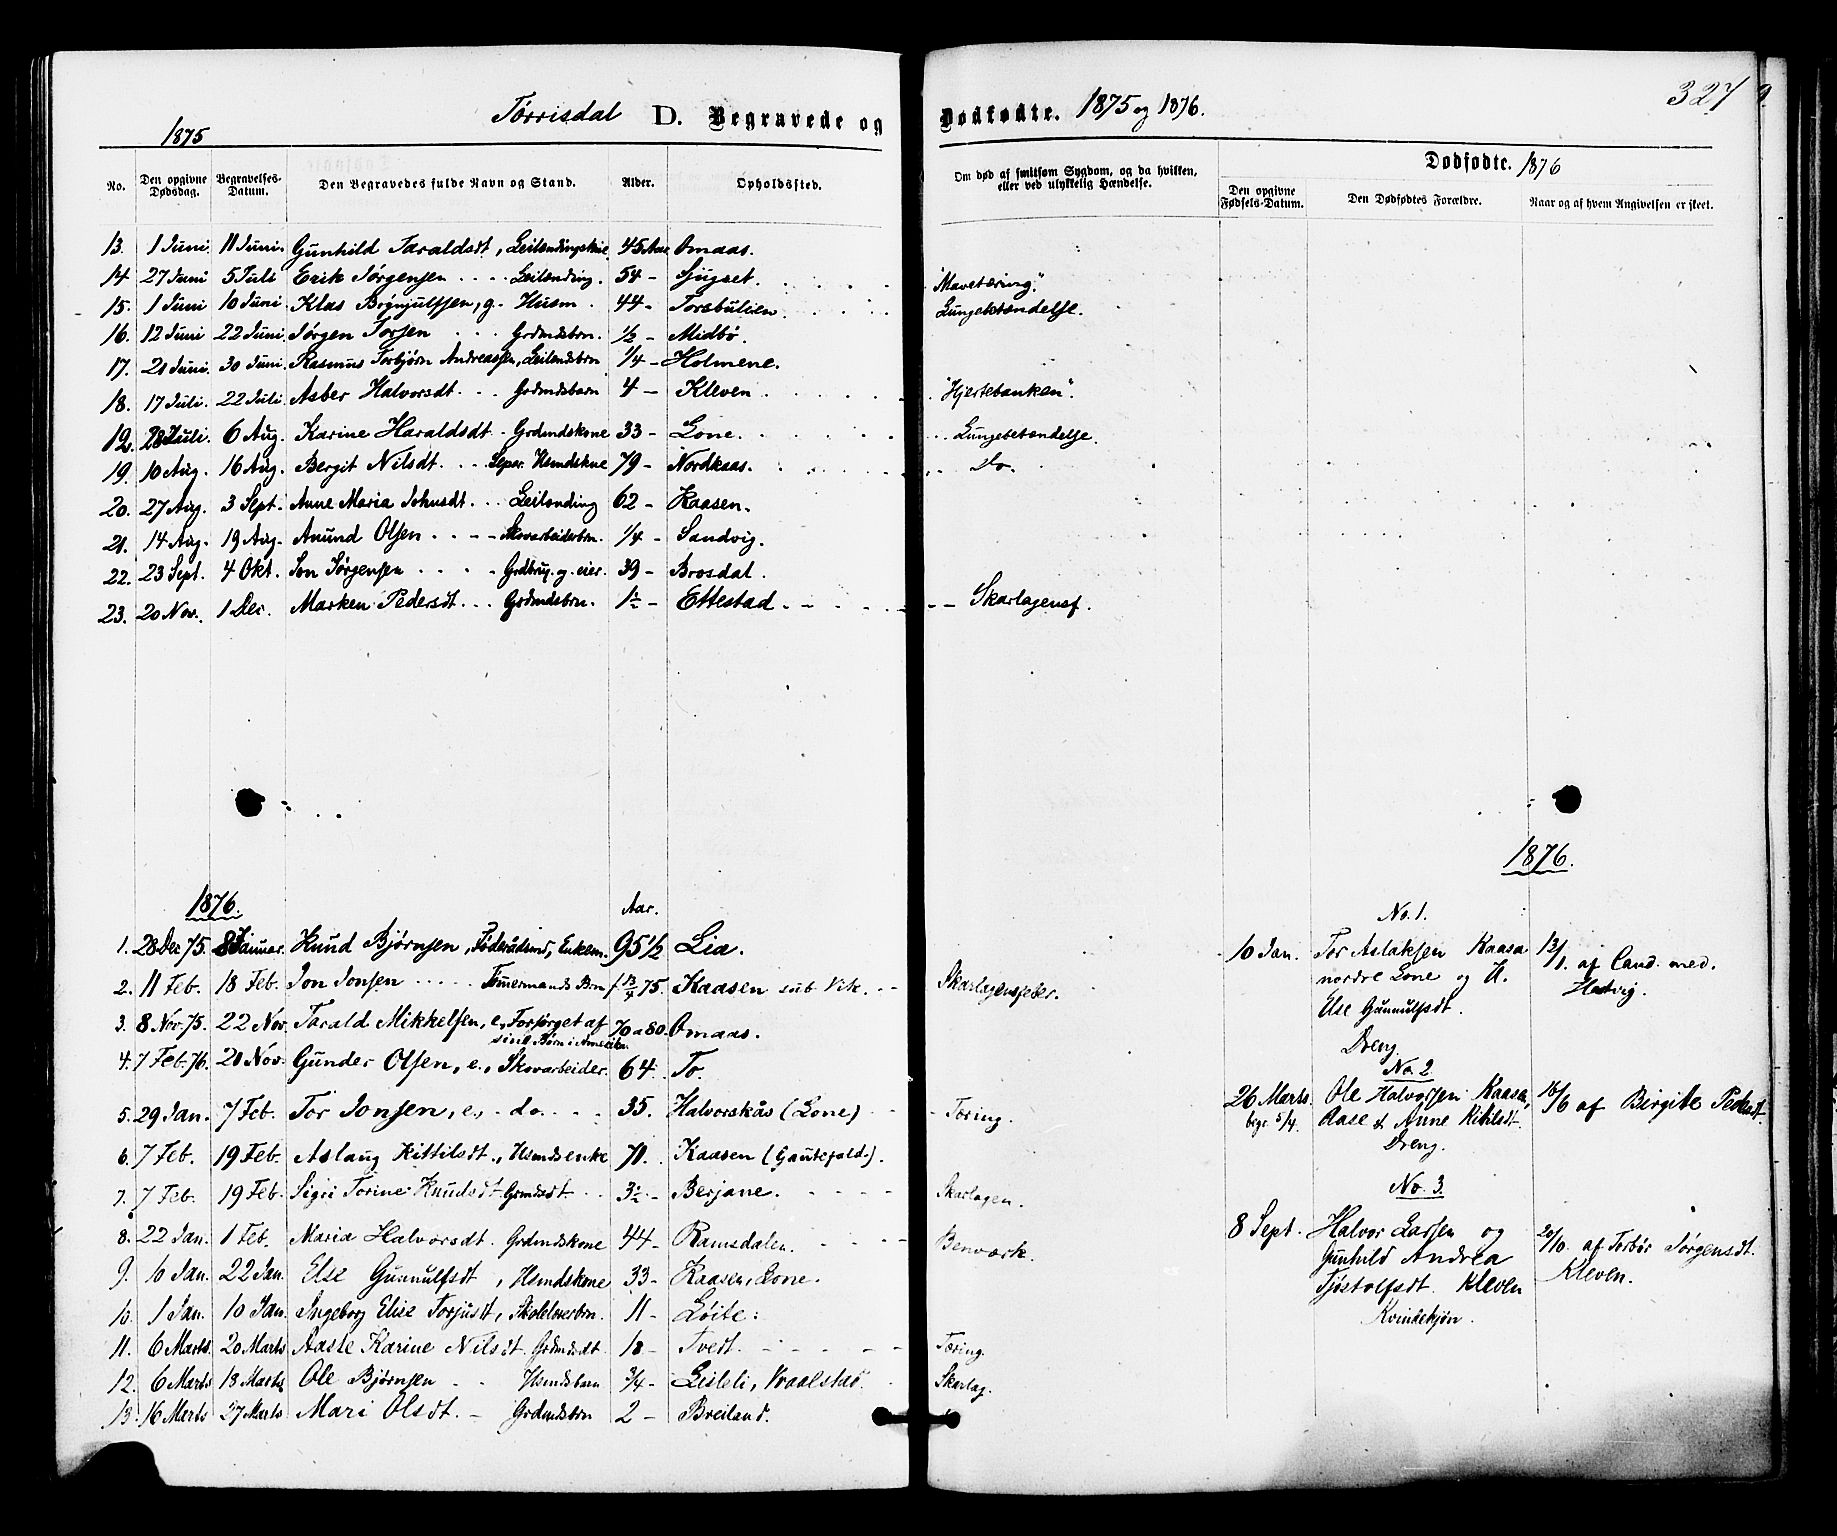 Tørrisdal D. Begravede og Dødfødte. 1875 og 1876. 327
1875
No. Den opgivne Dødsdag. Begravelses-Datum. Den Begravedes fulde Navn og Stand. Alder. Opholdssted. Om død af smitsom Sygdom, og da hvilken, eller ved ulykkelig Hændelse.
Dødfødte. 1876
Den opgivne Fødsels-Datum. Den Dødfødtes Forældre. Naar og af hvem Angivelsen er skeet.
13. 1 Juni. 11 Juni. Gunhild Taraldsdt, Leilændingskne 45 Aar Omaas.
14 27 Juni 5 Juli Erik Jørgensen Leilænding. 54 - "Mavetæring".
15. 1 Juni 10 Juni. Klas Brynjulfsen, g. Husm. 44 - Torsbulien. Lungebetændelse.
16. 12 Juni 22 Juni. Jørgen Torsen Grdmdsbrn. 1/2 - Midbø.
17. 21 Juni. 30 Juni. Rasmus Torbjørn Andreassen, Leilændsbrn 1/4 - Holmene.
18. 17 Juli. 22 Juli. Asber Halvorsdt. Grdmdsbarn 4 - Kleven. "Hjertebanken".
28 Juli. 6 Aug. Karine Haraldsdt. Grdmdskone 33 - Lone. Lungebetændelse.
19. 10 Aug. 16 Aug. Bergit Nilsdt. Separ. Hsmdskne 79 - Nordkaas. Do.
20. 27 Aug. 3 Sept. Anne Maria Johnsdt. Leilænding 62 - Kaasen.
21. 14 Aug. 19 Aug. Anund Olsen Skovarbeiderbrn. 1/4 - Sandvig.
22. 23 Sept. 4 Okt. Jon Jørgensen Grdbrug. og eier. 39 - Brosdal.
23. 20 Nov. 1 Dec. Marken Pedersdt. Grdmdsbrn. 1 1/2 - Ettestad Skarlagensf.
1876. Aar.
1. 28 Dec 75. 8 Januar. Knud Bjørnsen, Føderådsmd, Enkem. 95 1/2 Lia.
2. 11 Feb. 18 Feb. Jon Jonsen Tømermands Brn 75. Kaasen sub Vik. Skarlagensfeber.
3. 8 Nov. 75. 22 Nov. Tarald Mikkelsen, e., Forsørget af sine Børn i Amerika. 70 a 80. Omaas.
4. 7 Feb. 76. 20 Nov. Gunder Olsen, e., Skovarbeider. 64. To.
5. 29 Jan. 7 Feb. Tor Jonsen, e., do. 35. Halvorskås (Lone) Tæring.
6. 7 Feb. 19 Feb. Aslaug Kittilsdt., Hsmdsenke 71. Kaasen (Gautefald.).
7. 7 Feb. 19 Feb. Sigri Torine Knudsdt. Grmdsdt 3 1/2 - Berjane. Skarlagen.
8. 22 Jan. 1 Feb. Maria Halvorsdt. Grdmdskone 44 - Ramsdalen. Benværk.
9. 6 Jan. 22 Jan. Else Gunnulfsdt, Hsmdskone 33 - Kaasen, Lone.
10. 1 Jan. 10 Jan. Ingeborg Elise Torjusdt, Skolelærerbrn. 11 - Løite:
11. 6 Marts. 20 Marts Aaste Karine Nilsdt. Grdmdsdt. 18 - Tvedt. Tæring.
12. 6 Marts 13 Marts Ole Bjørnsen Hsmdsbarn 3/4 - Lisleli, Vraalstad. Skarlag.
13. 16 Marts 27 Marts Mari Olsdt. - Grdmdsbrn 2 - Breiland.
1876.
No. 1.
10 Jan. Tor Aslaksen Kaasa 13/1. af Cand. med.
nordre Lone og H. Hedvig.
Else Gunnulfsdt.
Dreng.
No. 2.
26 Marts. Ole Halvorsen Kaasa, 18/6 af Birgite Pedersdt.
begr. 5/4. Aase & Anne Kitilsdt.
Dreng.
No. 3.
8 Sept. Halvor Larsen og 20/10. af Torbør Jørgensdt.
Gunhild Andrea Kleven.
Tjøstolfsdt. Kleven
Kvindekjøn.